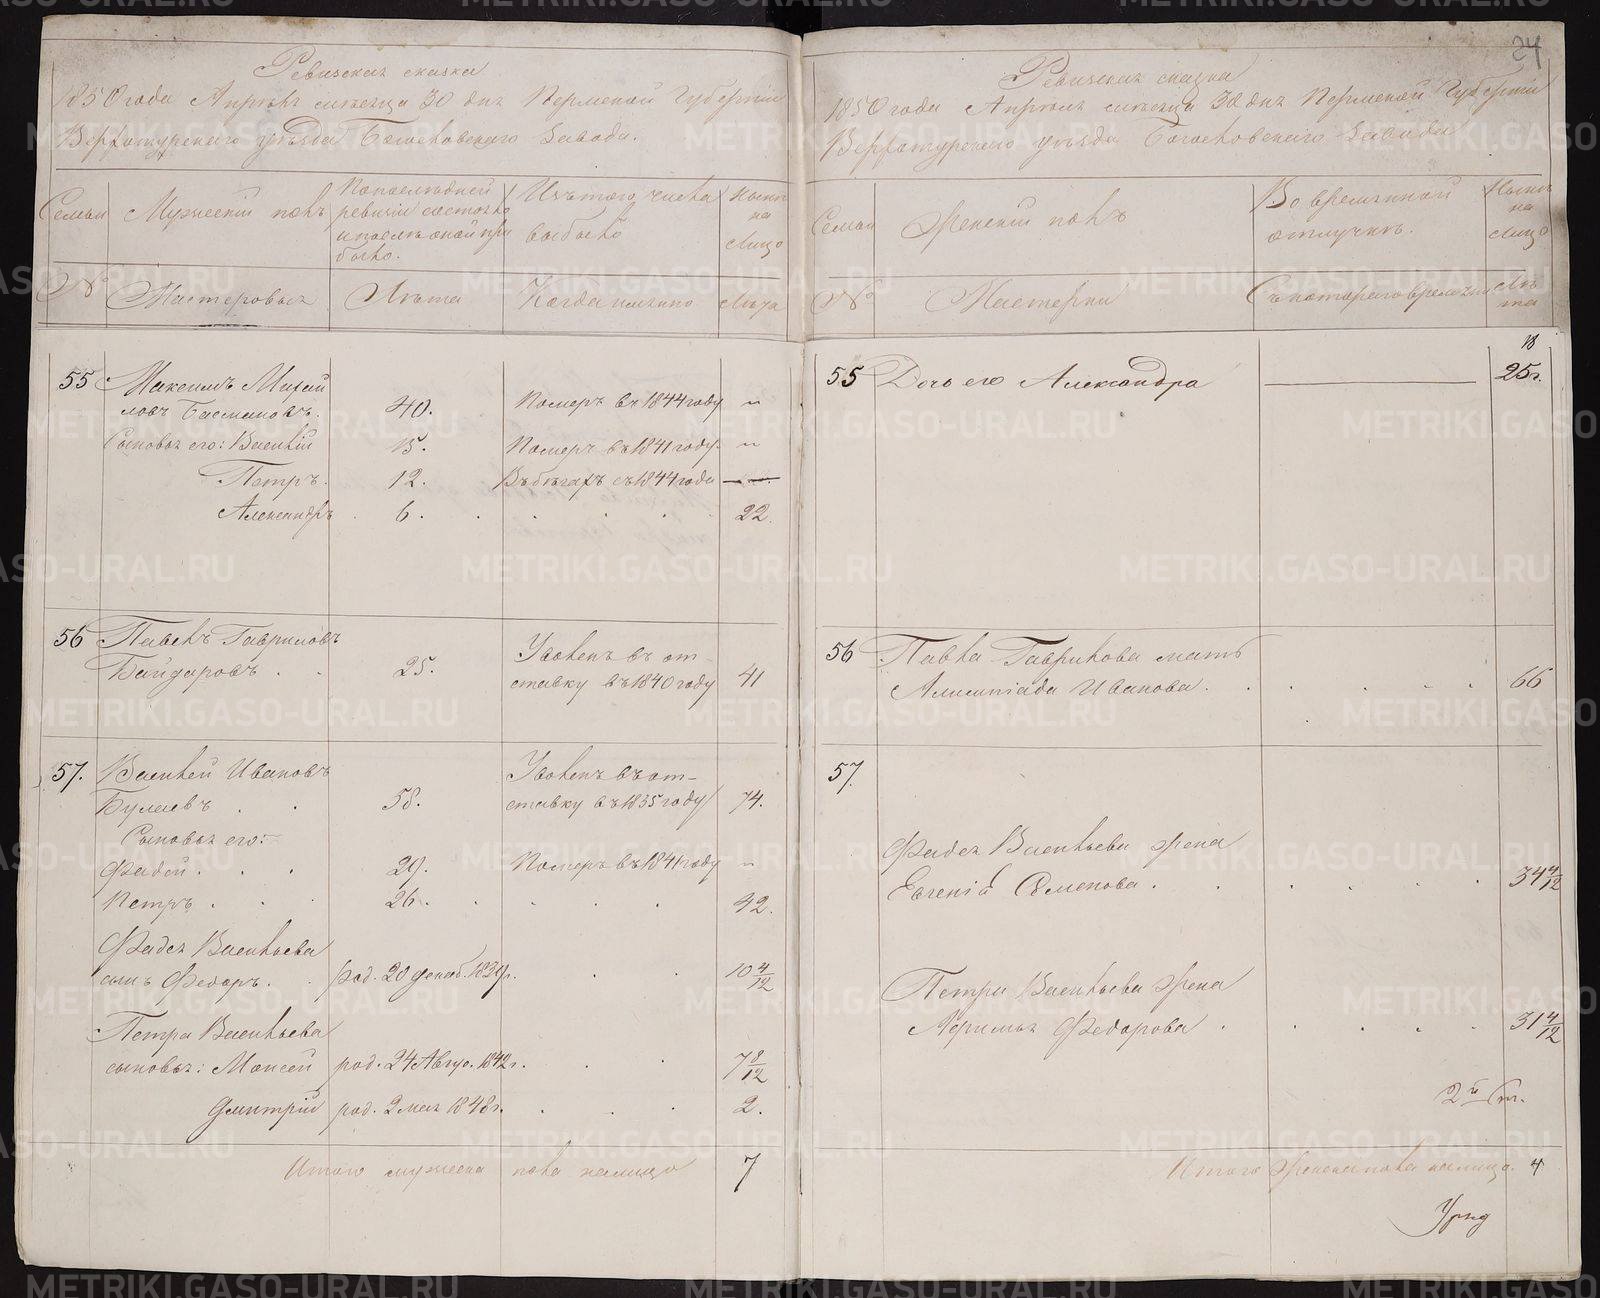 24
Ревизская сказка
1850 года Апреля месяца 30 дня Пермской Губернии
Верхотурскаго уѣзда Богословскаго Завода.
Семьи
Мужескій полъ
По последней
ревизіи состояло
и после оной при
было.
Изъ того числа
выбыло
Ныне
на
лицо
№
Мастеровыя
Лѣта
Когда именно
Лѣта
55
Максимъ Михай
ловъ Басмановъ.
40.
Померъ въ 1844 году
"
Сыновья его: Василій
15.
Померъ въ 1841 году
"
Петръ.
12.
Въ бѣгахъ съ 1844 года
Александръ
6.
22.
56
Павелъ Гавриловъ
Байдаровъ
25.
Уволенъ въ от
ставку въ 1840 году
41
57.
Василей Ивановъ
Булаевъ
58.
Уволенъ въ от-
ставку въ 1835 году
74.
Сыновья его:
Фадей
29.
Померъ въ 1841 году
"
Петръ
26.
42.
Фадея Васильева
сынъ Федоръ.
род. 20 декаб. 1839 г.
10 4/12
Петра Васильева
сыновья: Моисей
род. 24 Авгу. 1842 г.
7 8/12
Дмитрій
род. 2 мая 1848 г.
2.
Итого мужеска пола налицо
7
Ревизская сказка
1850 года Апреля месяца 30 дня Пермской Губерніи
Верхотурскаго уѣзда Богословскаго Завода
Семьи
Женскій полъ
Во временной
отлучке.
Ныне
на
лицо
№
Мастерки
Съ котораго времени
Лѣ
та
18
55
Дочь его Александра
25 г.
56
Павла Гаврилова мать
Алимпіада Иванова.
66
57.
Фадея Васильева жена
Евгенія Семенова.
34 4/12
Петра Васильева жена
Федорова
31 4/12
2й
Итого женска пола налицо.
4